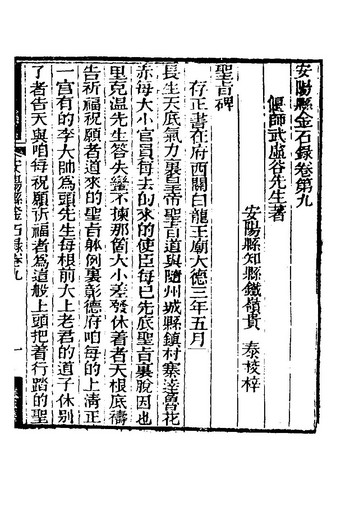 安陽縣金石錄卷第九
偃師武虛谷先生著
安陽縣知縣鐵嶺貴 泰校梓
聖旨碑
存正書在府西關白龍王廟大德三年五月
長生天底氣力裏皇帝聖旨道與隨州城縣鎮村寨達魯花
赤每大小官員每去的來的使臣每巳先底聖旨裏說因也
里克温先生答失蠻不揀那箇大小差發休着者天根底禱
告祈福祝願者道來的聖旨躰例裏彰德府咱每的上清正
一宮有的李大師爲頭先生每根前太上老君的道子休別
了者告天與咱每祝願祈福者爲這般上頭把着行踏的聖
安陽縣金石錄卷九
一